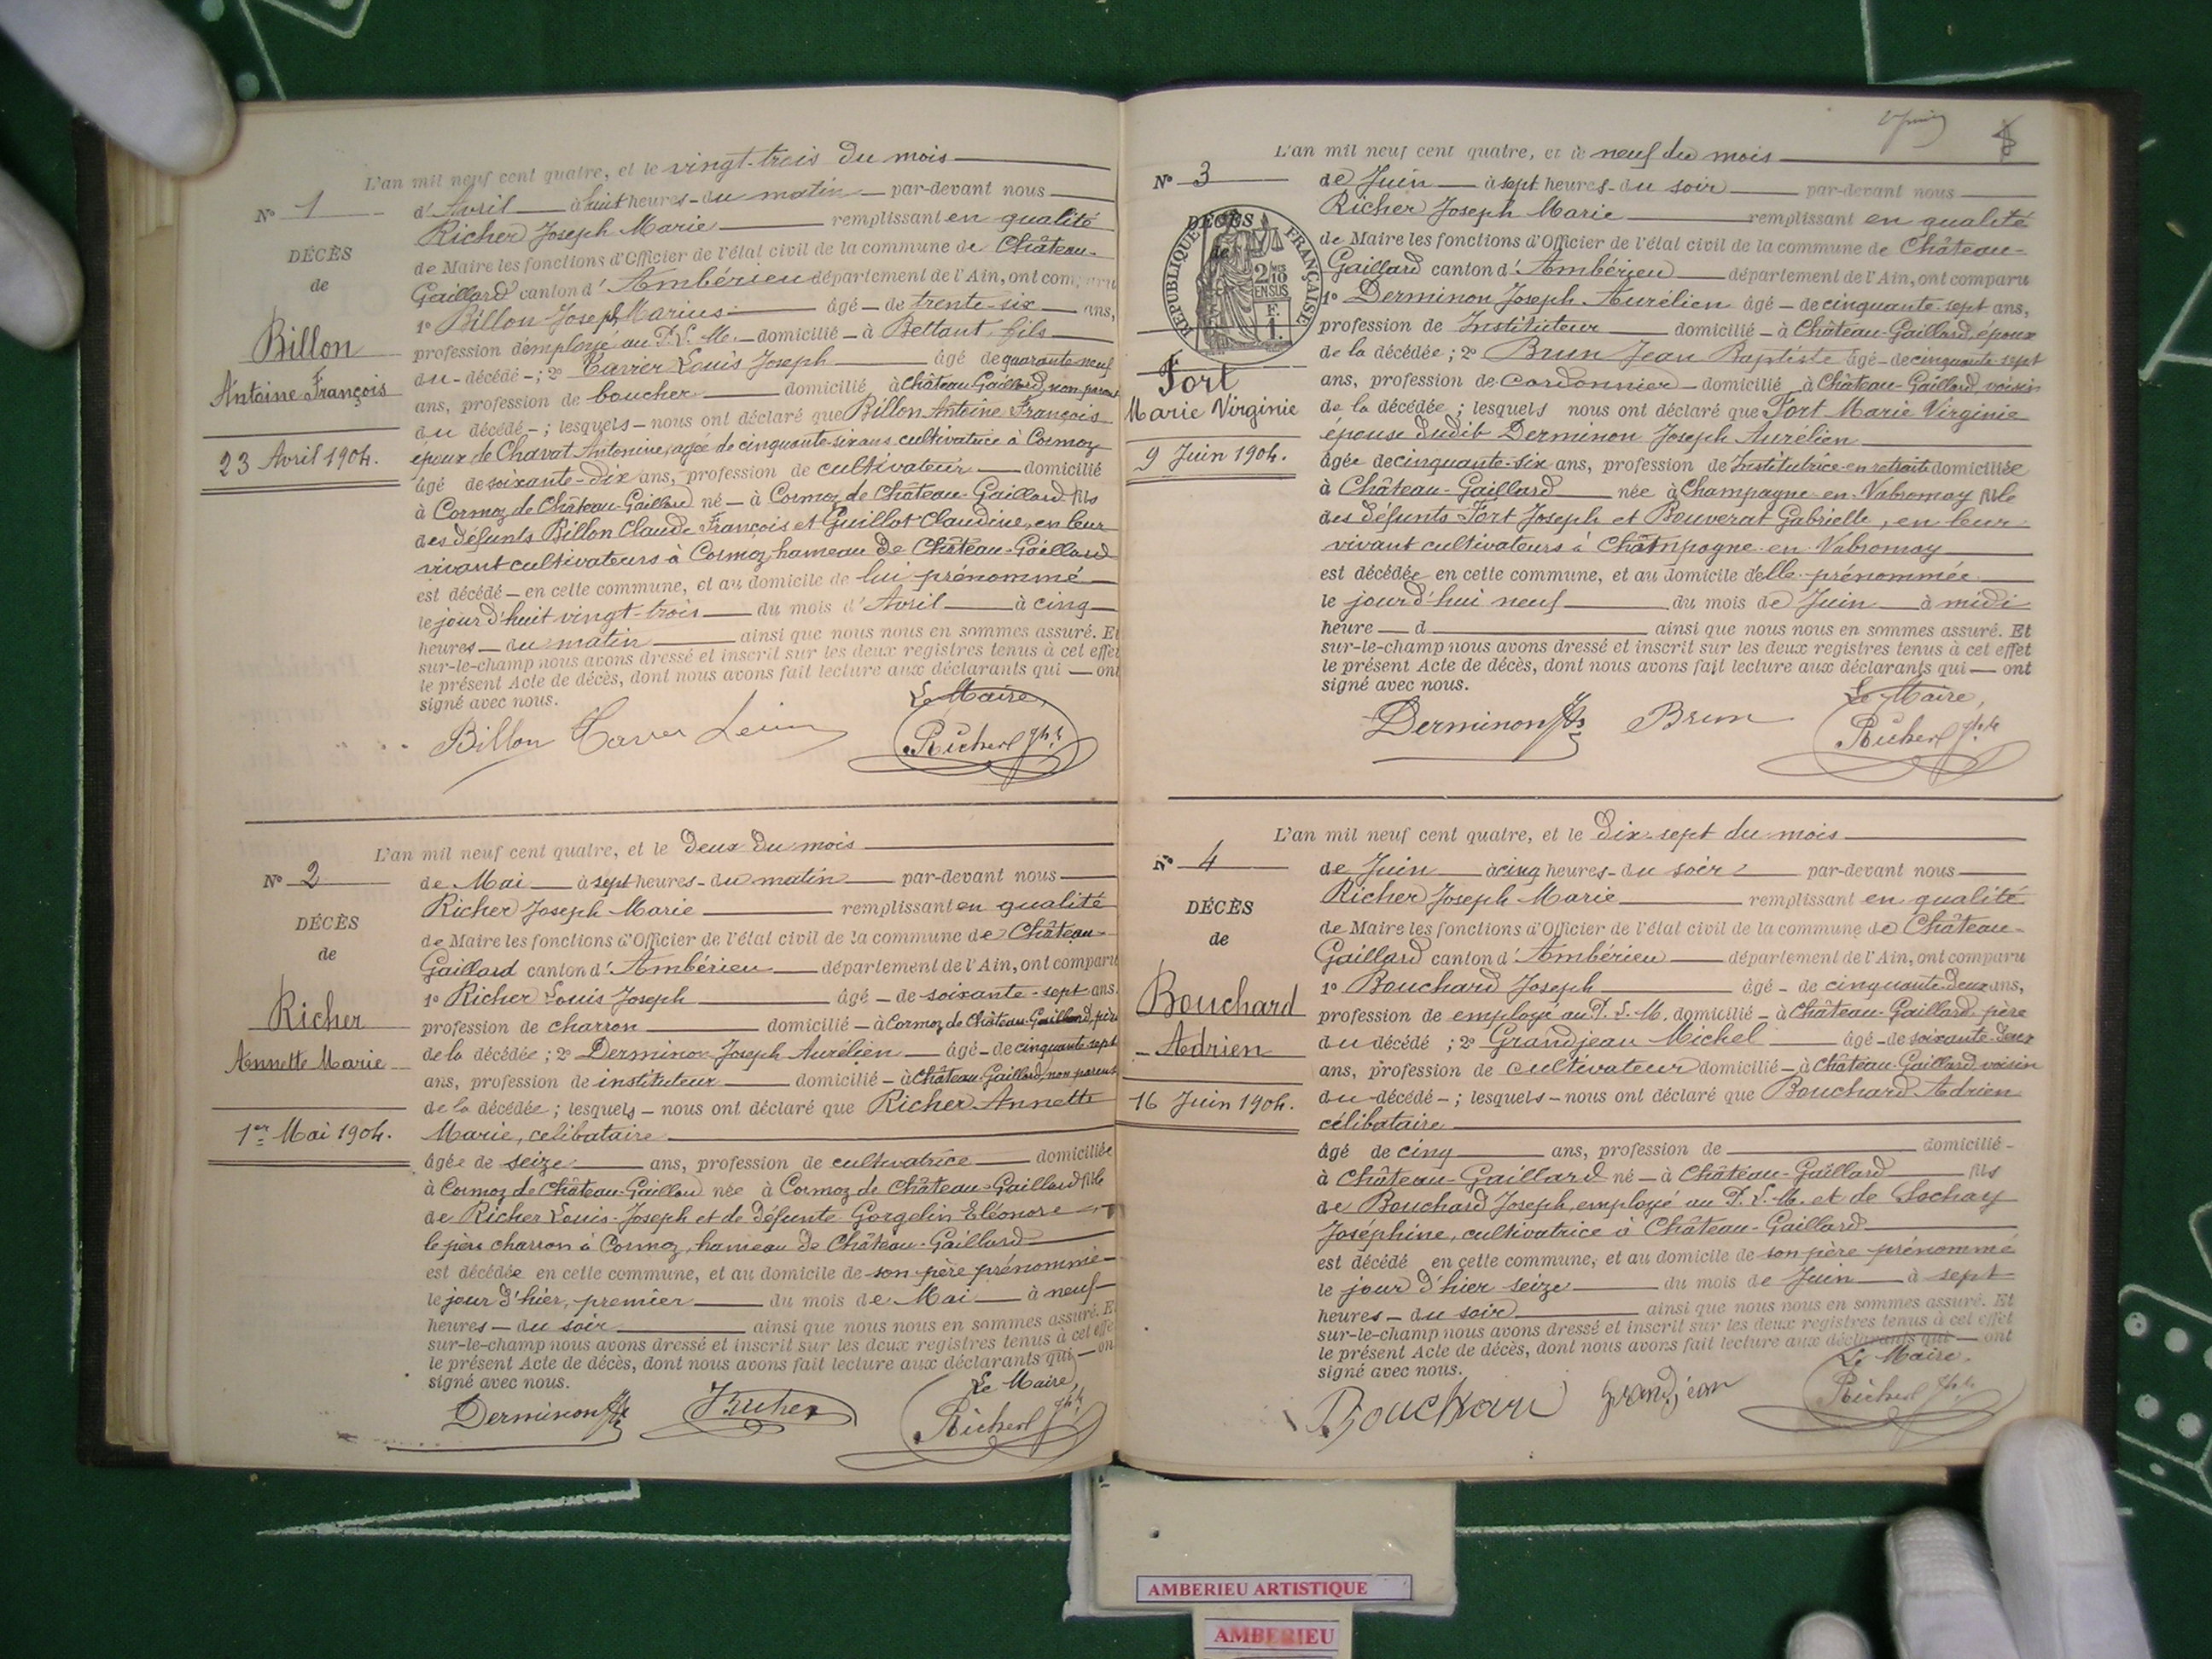 L'an mil neuf cent quatre, et le vingt-trois du mois
Nº 1
d'Avril à huit heures du matin par-devant nous
Richer Joseph Marie remplissant en qualité
DÉCÈS
de Maire les fonctions d'Officier de l'état civil de la commune de Château-
de
Gaillard canton d'Ambérieu département de l'Ain, ont comparu
1º Billon Joseph Marius âgé de trente-six ans,
Billon
profession d'employé au P. L. M. domicilié à Bettant, fils
du décédé; 2º Tavier Louis Joseph âgé de quarante neuf
Antoine François
ans, profession de boucher domicilié à Château Gaillard, non parent
du décédé; lesquels nous ont déclaré que Billon Antoine François
époux de Chavat Antonine, agée de cinquante-six ans cultivatrice à Cormoz
23 Avril 1904.
âgé de soixante-dix ans, profession de cultivateur domicilié
à Cormoz de Château-Gaillard né à Cormoz de Château-Gaillard fils
des défunts Billon Claude François et Guillot Claudine, en leur
vivant cultivateurs à Cormoz, hameau de Château-Gaillard
est décédé en cette commune, et au domicile de lui prénommé
le jour d'huit vingt-trois du mois d'Avril à cinq
heures du matin ainsi que nous nous en sommes assuré. Et
sur-le-champ nous avons dressé et inscrit sur les deux registres tenus à cet effet
le présent Acte de décès, dont nous avons fait lecture aux déclarants qui ont
signé avec nous.
Le Maire,
Billon
Richer Jph
L'an mil neuf cent quatre, et le deux du mois
Nº 2
de Mai à sept heures du matin par-devant nous
Richer Joseph Marie remplissant en qualité
DÉCÈS
de Maire les fonctions d'Officier de l'état civil de la commune de Château-
de
Gaillard canton d'Ambérieu département de l'Ain, ont comparu
1º Richer Louis Joseph âgé de soixante-sept ans.
Richer
profession de charron domicilié à Cormoz de Château-Gaillard, père
de la décédée; 2º Derminon Joseph Aurélien âgé de cinquante sept
Annette Marie
ans, profession de instituteur domicilié à Château-Gaillard, non parent
de la décédée; lesquels nous ont déclaré que Richer Annette
1er Mai 1904.
Marie, celibataire
âgée de seize ans, profession de cultivatrice domiciliée
à Cormoz de Château-Gaillard née à Cormoz de Château-Gaillard fille
de Richer Louis-Joseph et de défunte Gorgelin Eléonore
le père charron à Cormoz, hameau de Château-Gaillard
est décédée en cette commune, et au domicile de son père prénommé
le jour d'hier, premier du mois de Mai à neuf
heures du soir ainsi que nous nous en sommes assuré. Et
sur-le-champ nous avons dressé et inscrit sur les deux registres tenus à cet effet
le présent Acte de décès, dont nous avons fait lecture aux déclarants qui ont
signé avec nous.
Le Maire,
Derminon Richer Richer Jph
L'an mil neuf cent quatre, et le neuf du mois
Nº 3
de Juin à sept heures du soir par-devant nous
Richer Joseph Marie remplissant en qualité
DÉCÈS
de
RÉPUBLIQUE FRANÇAISE
2/10 EN SUS
F. 1.
de Maire les fonctions d'Officier de l'état civil de la commune de Château-
Gaillard canton d'Ambérieu département de l'Ain, ont comparu
1º Derminon Joseph Aurélien âgé de cinquante-sept ans,
profession de Instituteur domicilié à Château-Gaillard, époux
de la décédée; 2º Brun Jean Baptiste âgé de cinquante sept
Fort
ans, profession de cordonnier domicilié à Château-Gaillard, voisin
Marie Virginie
de la décédée; lesquels nous ont déclaré que Fort Marie Virginie
épouse dudit Derminon Joseph Aurélien
9 Juin 1904.
âgée de cinquante-six ans, profession de Institutrice en retraite domiciliée
à Château-Gaillard née à Champagne-en-Valromay fille
des défunts Fort Joseph et Bouverat Gabrielle, en leur
vivant cultivateurs à Champagne-en-Valromay
est décédée en cette commune, et au domicile d'elle prénommée
le jour d'hui neuf du mois de Juin à midi
heure d ainsi que nous nous en sommes assuré. Et
sur-le-champ nous avons dressé et inscrit sur les deux registres tenus à cet effet
le présent Acte de décès, dont nous avons fait lecture aux déclarants qui ont
signé avec nous.
Le Maire,
Derminon Brun Richer Jph
L'an mil neuf cent quatre, et le dix-sept du mois
Nº 4
de Juin à cinq heures du soir par-devant nous
Richer Joseph Marie remplissant en qualité
DÉCÈS
de Maire les fonctions d'Officier de l'état civil de la commune de Château-
de
Gaillard canton d'Ambérieu département de l'Ain, ont comparu
1º Bouchard Joseph âgé de cinquante-deux ans,
Bouchard
profession de employé au P. L. M. domicilié à Château-Gaillard, père
du décédé; 2º Grandjean Michel âgé de soixante-deux
Adrien
ans, profession de cultivateur domicilié à Château-Gaillard voisin
16 Juin 1904.
du décédé; lesquels nous ont déclaré que Bouchard Adrien
célibataire
âgé de cinq ans, profession de domicilié
à Château-Gaillard né à Château-Gaillard fils
de Bouchard Joseph, employé au P. L. M. et de Sochay
Joséphine, cultivatrice à Château-Gaillard
est décédé en cette commune, et au domicile de son père prénommé
le jour d'hier seize du mois de Juin à sept
heures du soir ainsi que nous nous en sommes assuré. Et
sur-le-champ nous avons dressé et inscrit sur les deux registres tenus à cet effet
le présent Acte de décès, dont nous avons fait lecture aux déclarants qui ont
signé avec nous.
Le Maire.
Bouchard Grandjean Richer Jph
AMBERIEU ARTISTIQUE
AMBERIEU